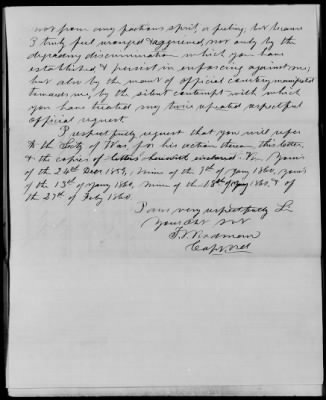 not from any factious spirit or feeling, but because
I truly feel wronged & aggrieved, not only by the
degrading discrimination which you have
established & persist in enforcing against me;
but also by the want of official courtesy manifested
towards me, by the silent contempt with which
you have treated my twice repeated respectful
official request.
I respectfully request that you will refer
to the Secty of War, for his action thereon, this letter,
& the copies of letters herewith enclosed. Viz. Yours
of the 24th Decr 1859, mine of the 9th of Jany 1860, yours
of the 13th of Jany 1860, mine of the 18th of Jany 1860, & of
the 27th of Feby 1860.
I am, very respectfully Sir
Your Obt Svt
T. J. Rodman
Capt Ord